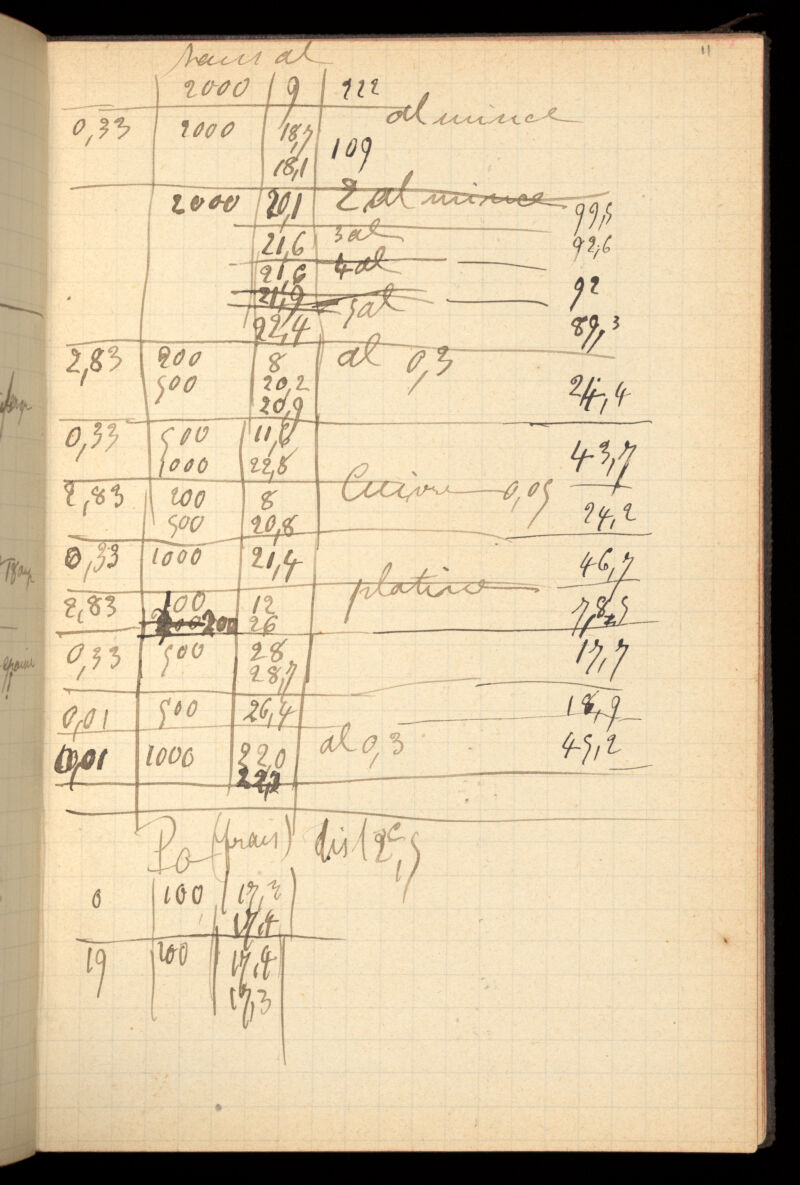 11
sans al
2000 9 222
al mince
0,33 2000 18,7
18,1 109
2000 20,1 2 al mince 99,5
21,6 3 al 92,6
21,6 4 al
21,9 5 al 92
22,4 89,3
2,83 200 8 al 0,3
500 20,2 24,4
20,9
0,33 500 11,6
1000 22,8 43,7
2,83 200 8 Cuivre 0,05
500 20,8 24,2
0,33 1000 21,4 46,7
platine
2,83 100 12 7,85
200 26
0,33 500 28 17,7
28,7
0,01 500 26,4 18,9
0,01 1000 22,0 al 0,3 45,2
22,2
Po (frais) dist 2c,5
0 100 17,3
17,4
19 200 17,4
17,3